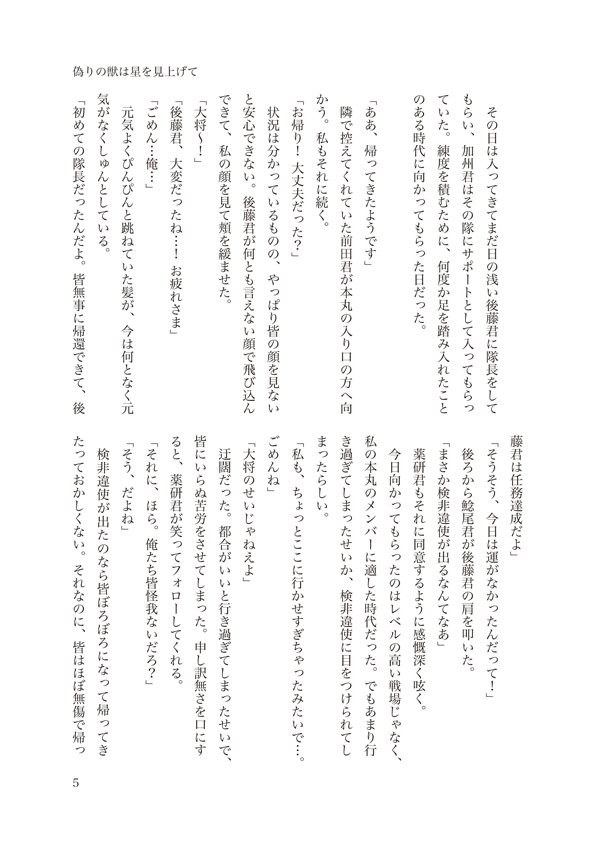 偽りの獣は星を見上げて
その日は入ってきてまだ日の浅い後藤君に隊長をして
もらい、加州君はその隊にサポートとして入ってもらっ
ていた。練度を積むために、何度か足を踏み入れたこと
のある時代に向かってもらった日だった。
「ああ、帰ってきたようです」
隣で控えてくれていた前田君が本丸の入り口の方へ向
かう。私もそれに続く。
「お帰り！ 大丈夫だった？」
状況は分かっているものの、やっぱり皆の顔を見ない
と安心できない。後藤君が何とも言えない顔で飛び込ん
できて、私の顔を見て頬を緩ませた。
「大将〜！」
「後藤君、大変だったね…！ お疲れさま」
「ごめん…俺…」
元気よくぴんぴんと跳ねていた髪が、今は何となく元
気がなくしゅんとしている。
「初めての隊長だったんだよ。皆無事に帰還できて、後
藤君は任務達成だよ」
「そうそう、今日は運がなかったんだって！」
後ろから鯰尾君が後藤君の肩を叩いた。
「まさか検非違使が出るなんてなあ」
薬研君もそれに同意するように感慨深く呟く。
今日向かってもらったのはレベルの高い戦場じゃなく、
私の本丸のメンバーに適した時代だった。でもあまり行
き過ぎてしまったせいか、検非違使に目をつけられてし
まったらしい。
「私も、ちょっとここに行かせすぎちゃったみたいで…。
ごめんね」
「大将のせいじゃねえよ」
迂闊だった。都合がいいと行き過ぎてしまったせいで、
皆にいらぬ苦労をさせてしまった。申し訳無さを口にす
ると、薬研君が笑ってフォローしてくれる。
「それに、ほら。俺たち皆怪我ないだろ？」
「そう、だよね」
検非違使が出たのなら皆ぼろぼろになって帰ってき
たっておかしくない。それなのに、皆はほぼ無傷で帰っ
5